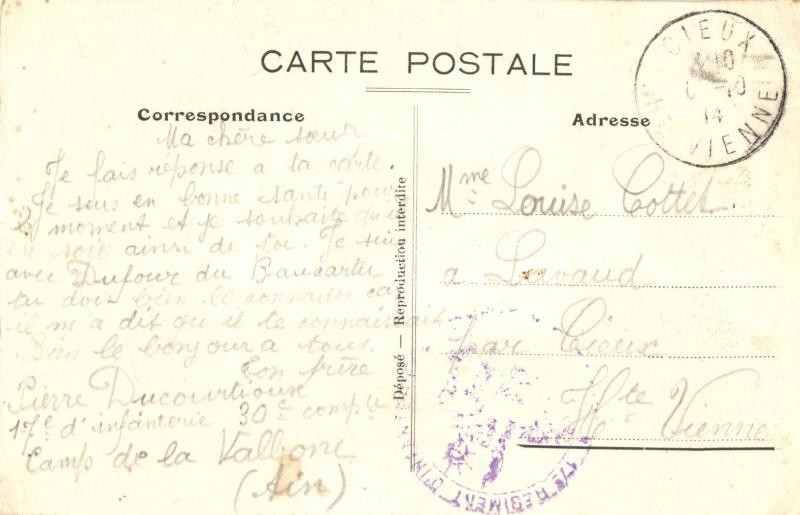 CARTE POSTALE
Correspondance
Ma chère sœur
Je fais réponse a ta carte.
Je suis en bonne santé pour
le moment et je souhaite qu'il
en soit ainsi de toi. Je suis
avec Dufour du
tu dois bien le connaitre car
il m a dit qu il te connaissait
Bien le bonjour a tous.
Ton frère
Pierre Ducourtioux
17e d'infanterie 30e comp ie
Camp de la Valbone
(Ain)
Déposé — Reproduction interdite
Adresse
Mme Louise Cottet
a Lavaud
par Cieux
Hte Vienne
CIEUX
14
VIENNE
17e REGIMENT D'INFANTERIE